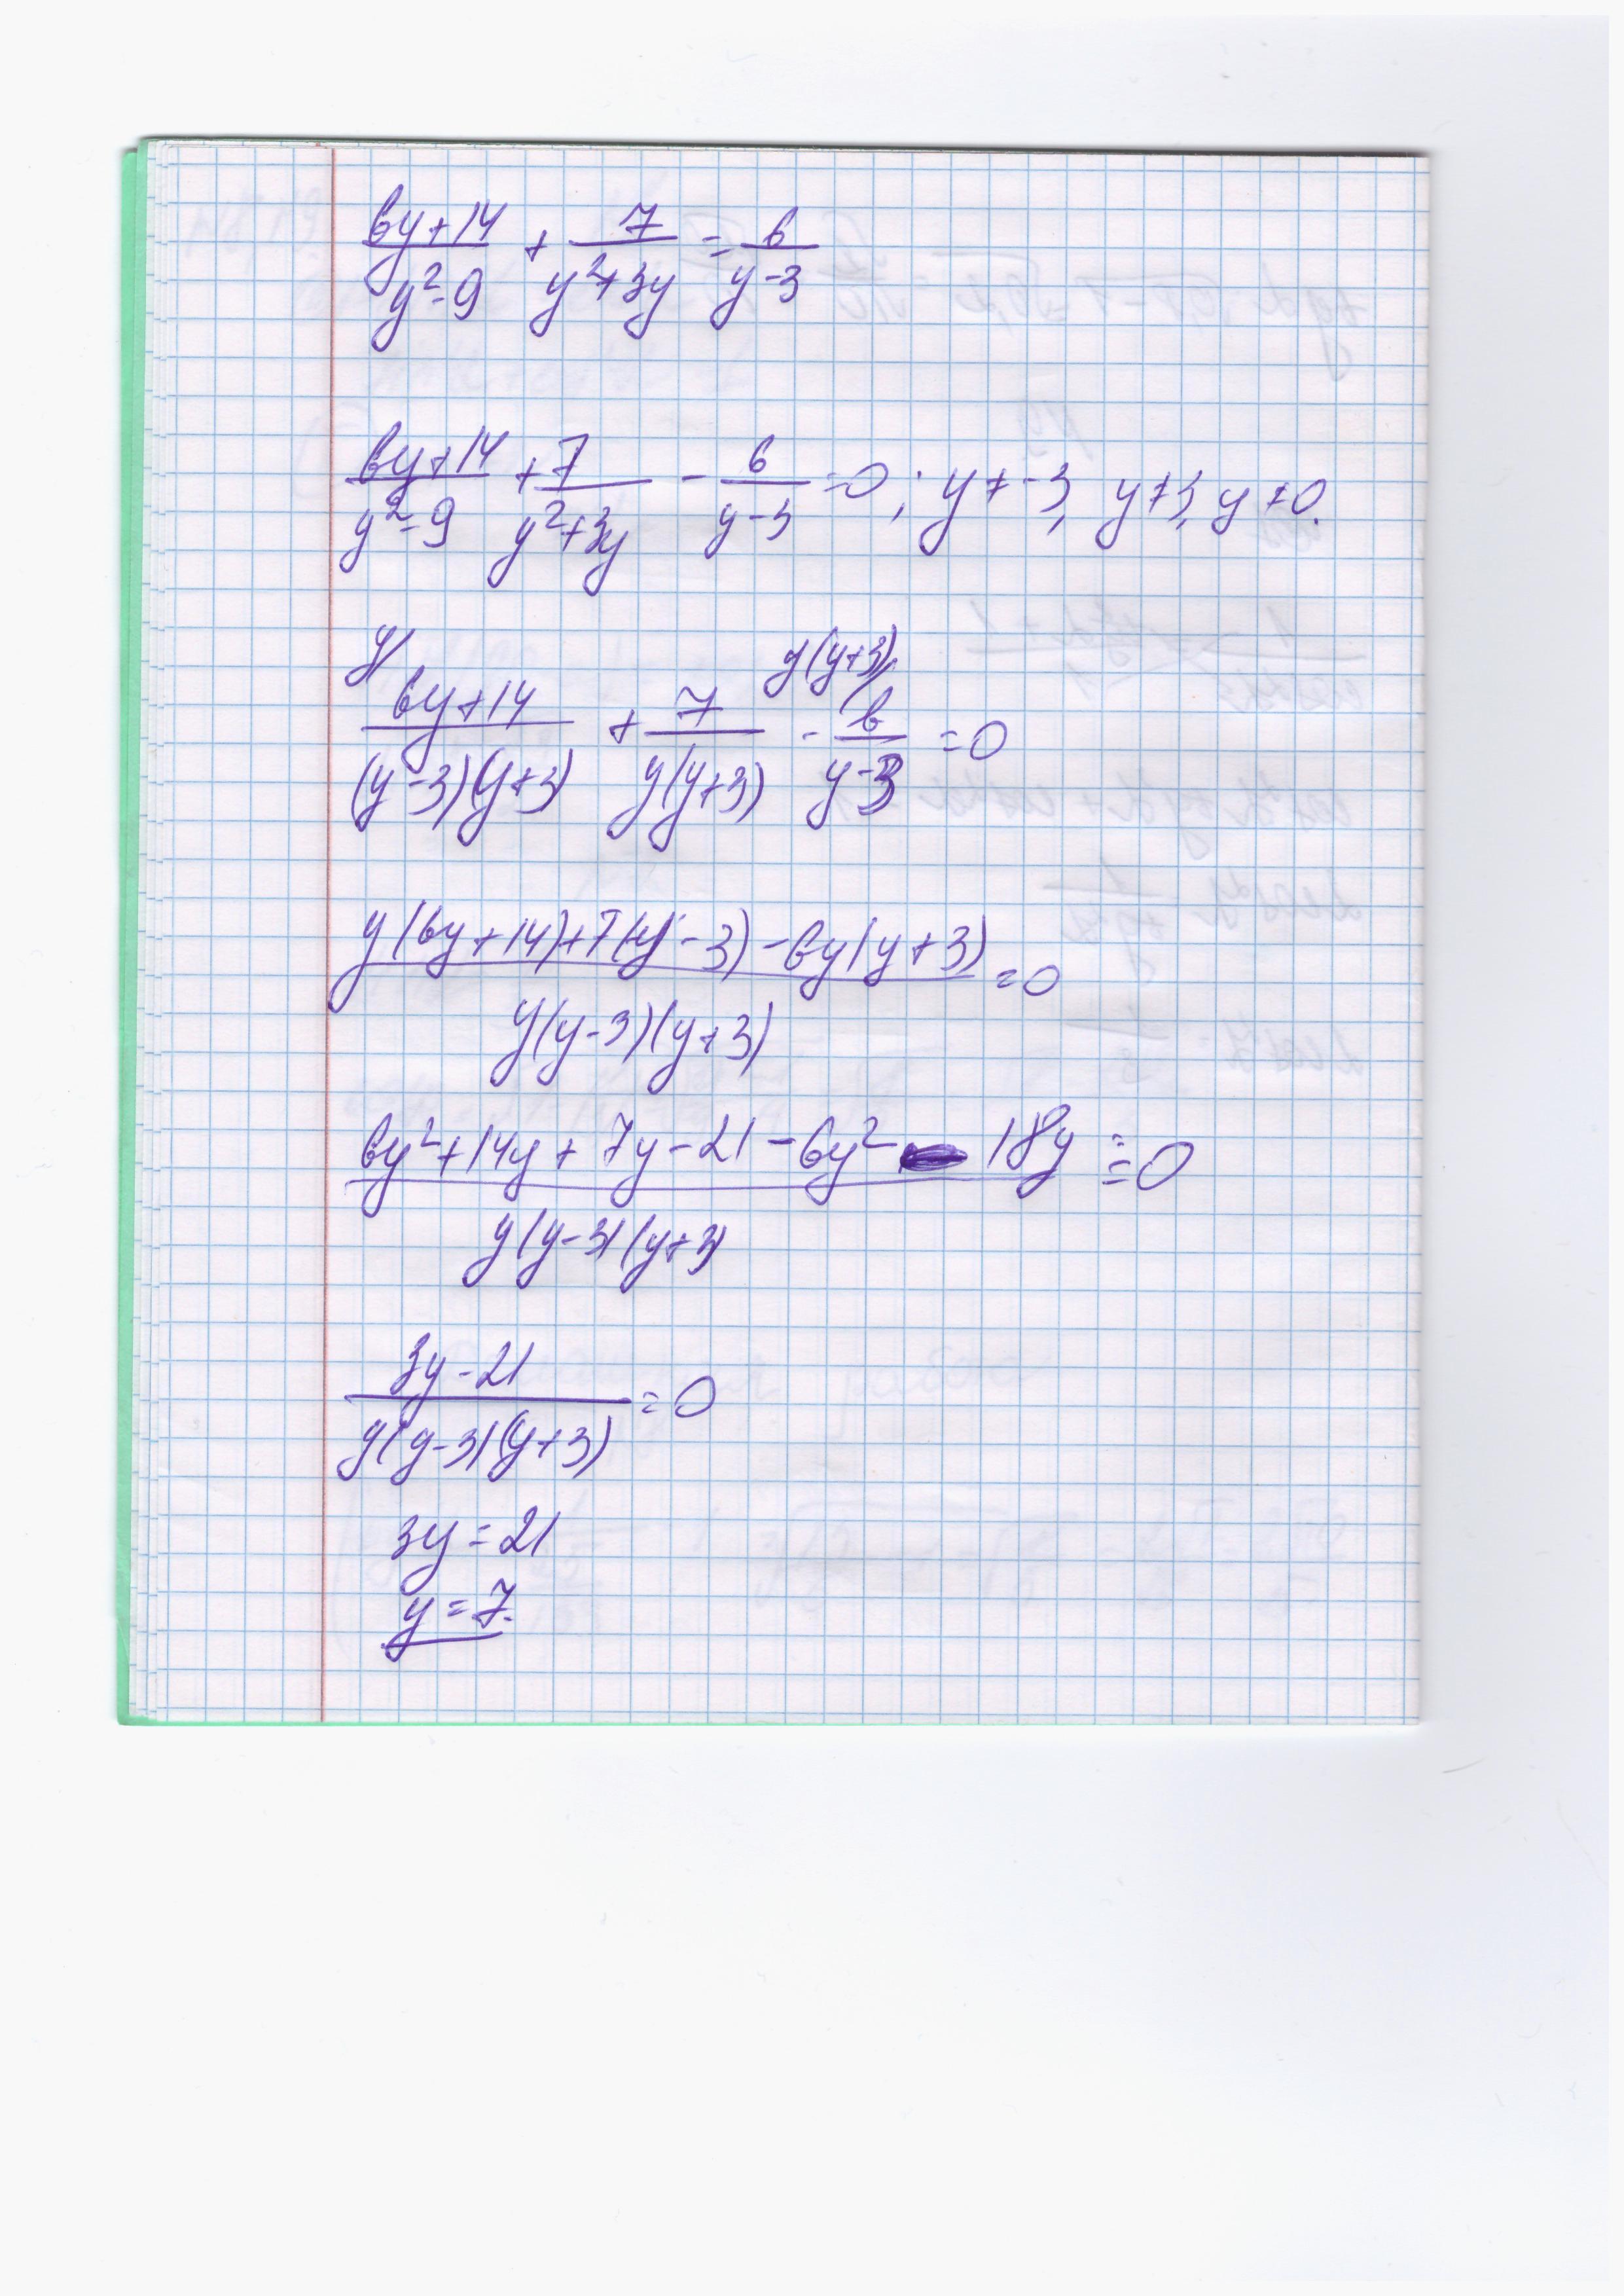 6y+14 / y²-9 + 7 / y²+3y = 6 / y-3
6y+14 / y²-9 + 7 / y²+3y - 6 / y-3 = 0; y ≠ -3, y ≠ 3, y ≠ 0.
y/ y(y+3)/
6y+14 / (y-3)(y+3) + 7 / y(y+3) - 6 / y-3 = 0
y(6y+14)+7(y-3)-6y(y+3) / y(y-3)(y+3) = 0
6y²+14y+7y-21-6y² - 18y / y(y-3)(y+3) = 0
3y-21 / y(y-3)(y+3) = 0
3y = 21
y = 7.